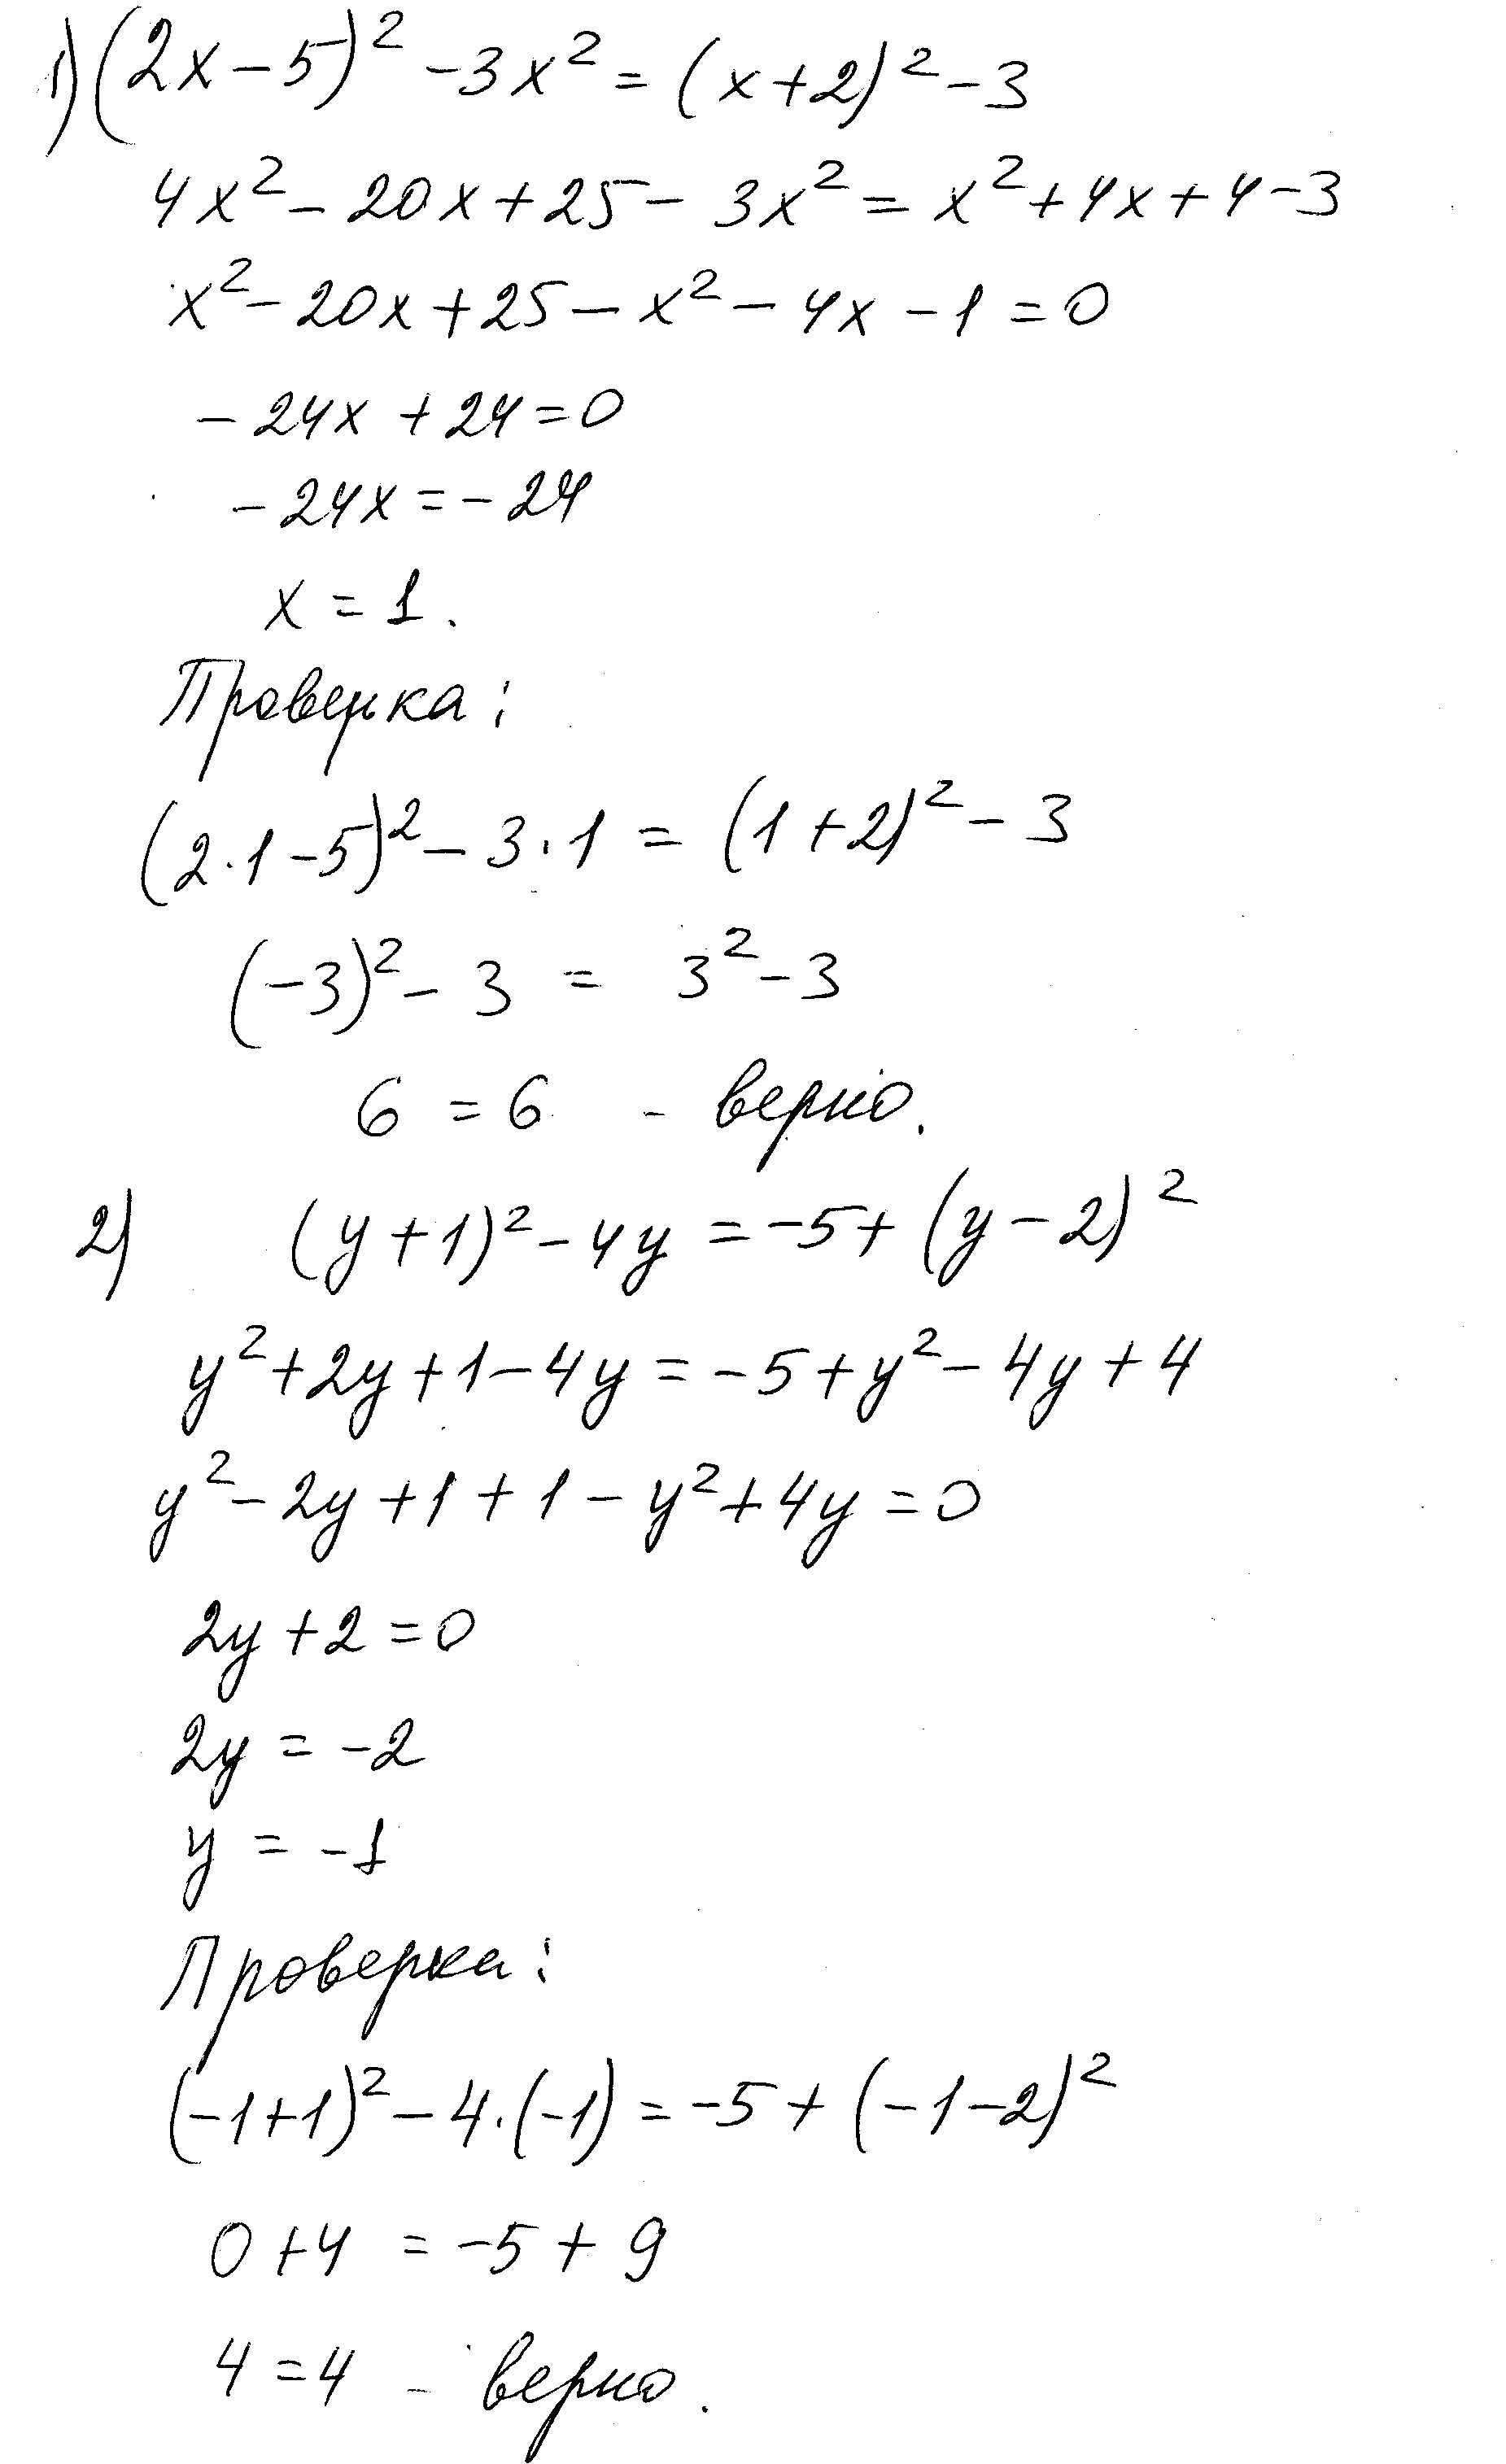 1) (2x-5)² -3x² = (x+2)² -3
4x² - 20x + 25 - 3x² = x² + 4x + 4 - 3
x² - 20x + 25 - x² - 4x - 1 = 0
- 24x + 24 = 0
- 24x = - 24
x = 1.
Проверка:
(2·1-5)² - 3·1 = (1+2)² - 3
(-3)² - 3 = 3² - 3
6 = 6 - верно.
2) (y+1)² - 4y = -5 + (y-2)²
y² + 2y + 1 - 4y = -5 + y² - 4y + 4
y² - 2y + 1 + 1 - y² + 4y = 0
2y + 2 = 0
2y = -2
y = -1
Проверка:
(-1+1)² - 4·(-1) = -5 + (-1-2)²
0 + 4 = -5 + 9
4 = 4 - верно.